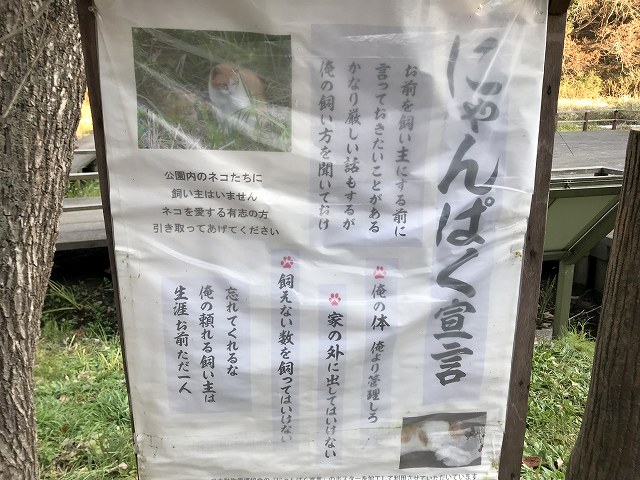 にゃんぱく宣言
お前を飼い主にする前に
言っておきたいことがある
かなり厳しい話もするが
俺の飼い方を聞いておけ
公園内のネコたちに
飼い主はいません
ネコを愛する有志の方
引き取ってあげてください
俺の体 俺より管理しろ
家の外に出してはいけない
飼えない数を飼ってはいけない
忘れてくれるな
俺の頼れる飼い主は
生涯お前ただ一人
「にゃんぱく宣言」のポスターを加工して利用させていただいています